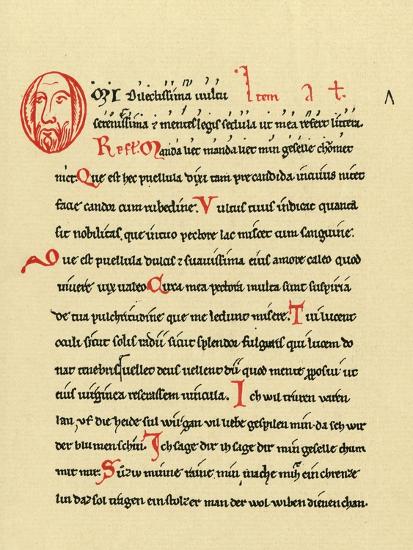 O mi dilectissima uultu Item a t
serenissima ⁊ mente legis sedula ut mea refert littera
Refl. Manda liet manda liet min geselle chomet
niet. Que est hec puellula dixi tam precandida in cuius nitet
facie candor cum rubedine. Vultus tuus indicat quanta
sit nobilitas, que in tuo pectore lac miscet cum sanguine.
Que est puellula dulcis ⁊ suauissima eius amore caleo quod
uiuere uix ualeo Circa mea pectora multa sunt suspiria
de tua pulchritudine que me ledunt misere. Tui lucent
oculi sicut solis radii sicut splendor fulguris qui lucem do
nat tenebris uellet deus uellent dii quod mente proposui ut
eius uirginea reserassem uincula. Ich wil truren varen
lan. vf die heide sul wir gan vil liebe gespilen min. da seh wir
der blumen schin. Ich sage dir ih sage dir min geselle chum
mit mir. Suziu minne raine min mache mich ein chrenze
lin daz sol tragen ein stolzer man der wol wiben dienen chan.